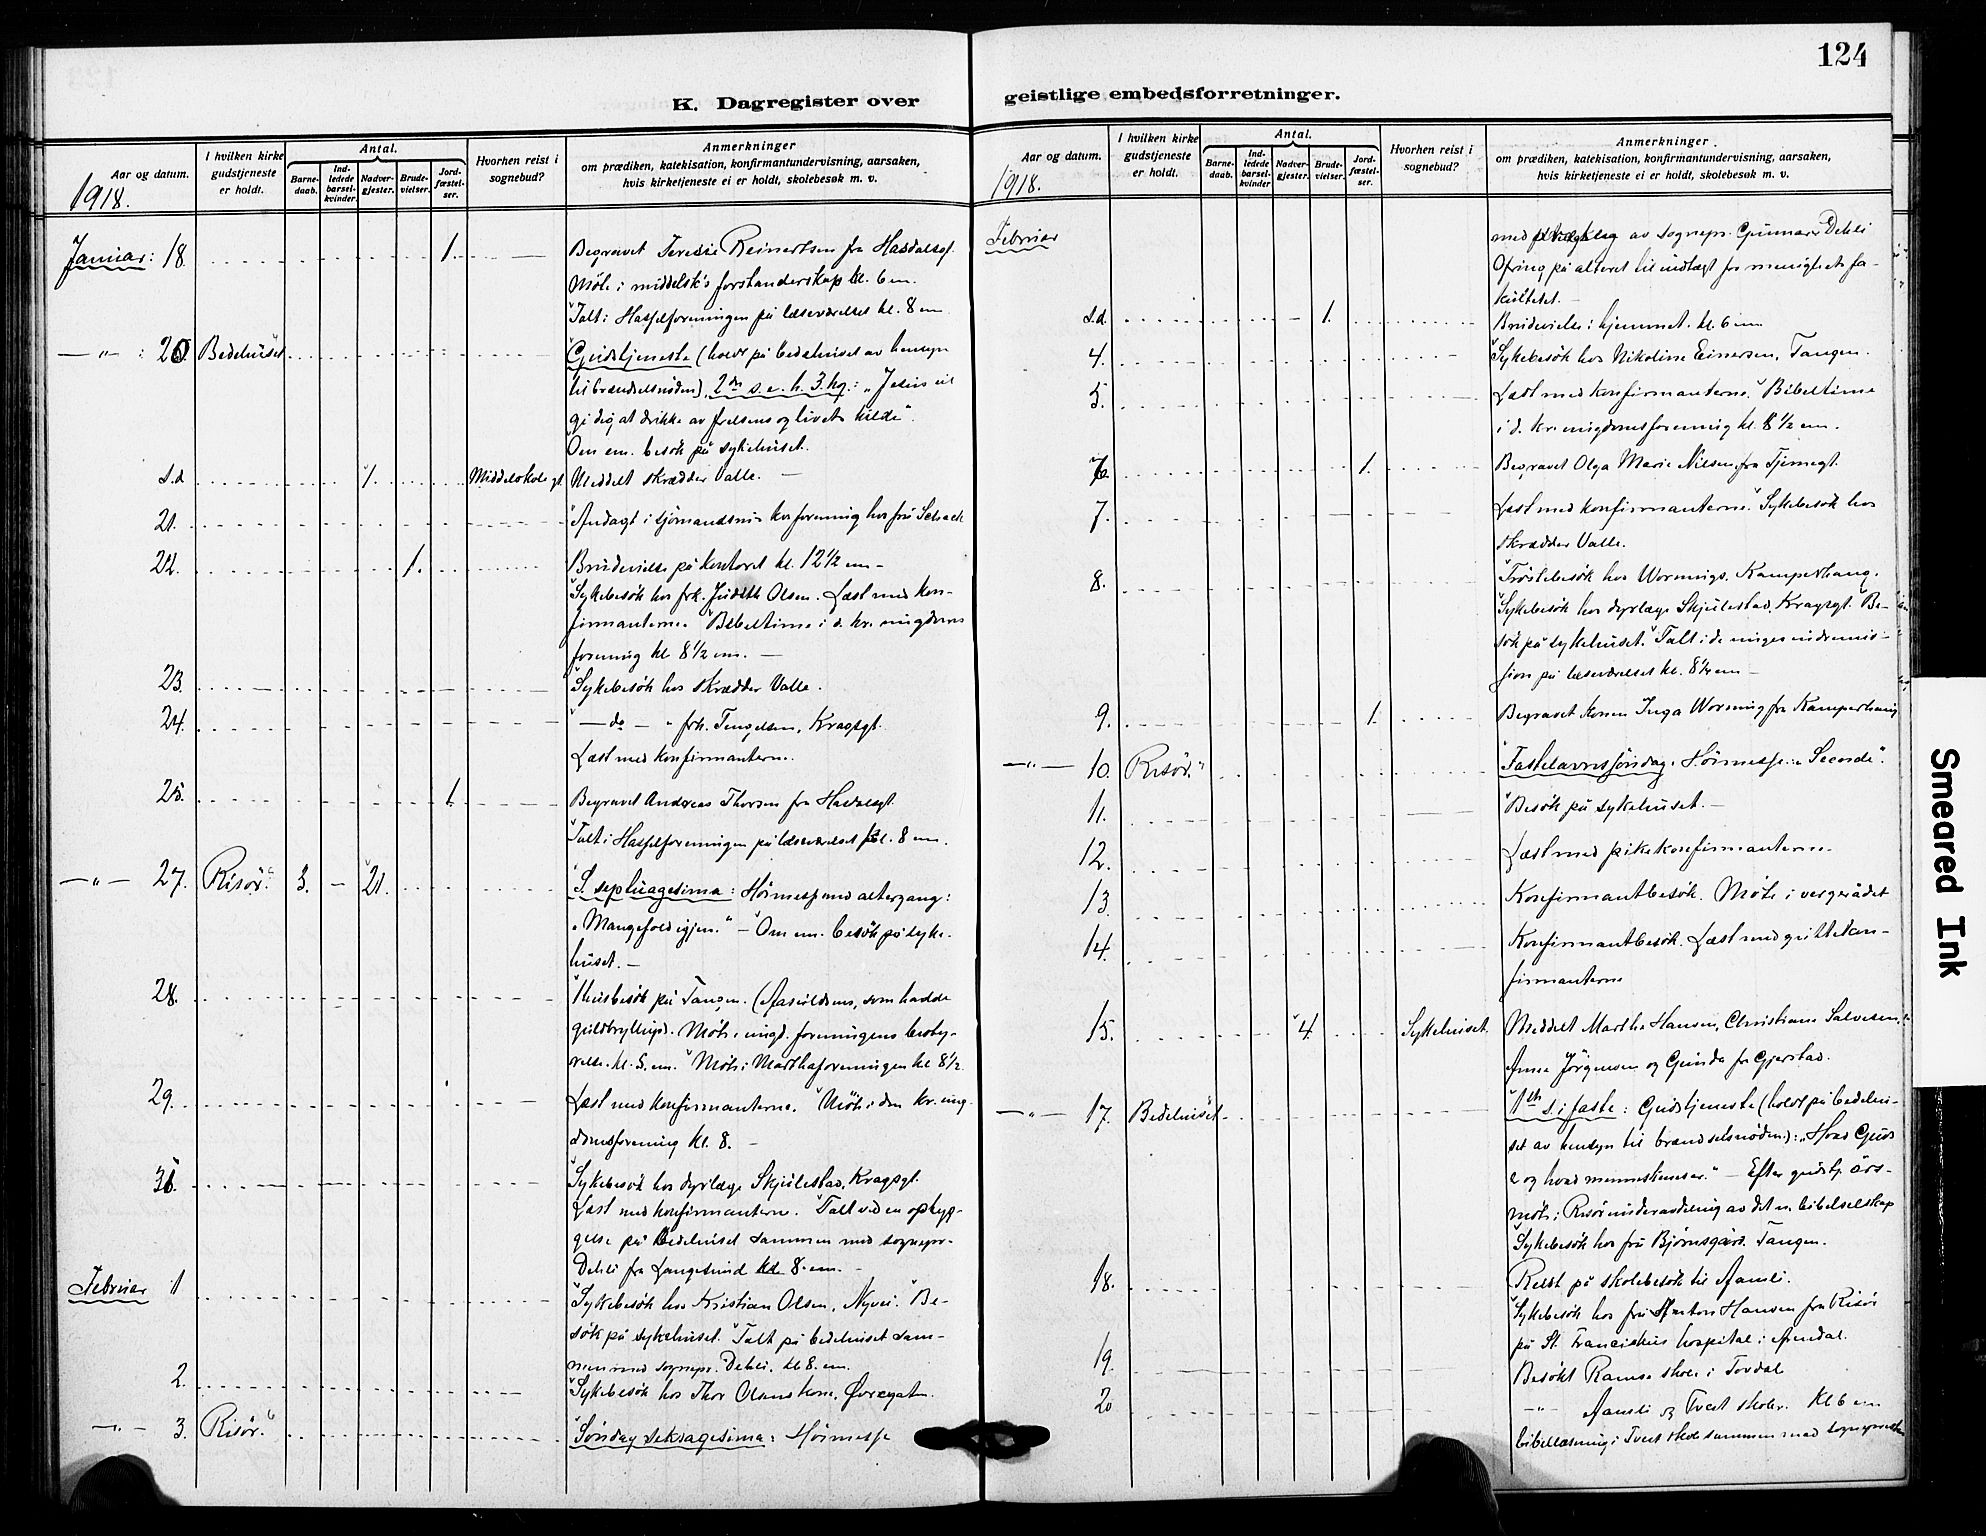 124
K. Dagregister over
geistlige embedsforretninger.
Aar og datum.
I hvilken kirke gudstjeneste er holdt.
Antal.
Barne-daab.
Ind-ledede barsel-kvinder
Nadver-gjester.
Brude-vielser.
Jord-fæstel-ser.
Hvorhen reist i sognebud?
Anmerkninger
om prædiken, katekisation, konfirmantundervisning, aarsaken,
hvis kirketjeneste ei er holdt, skolebesøk m. v.
1918.
Januar: 18. 1. Begravet Teresie Reinertsen fra Hasdalsgt.
Möte i middelsk's forstanderskap kl. 6 em.
Talt i Hasselforeningen på læseværelset kl. 8 em
— " — : 20. Bedehuset Gudstjeneste (holdt på bedehuset av hensyn
til brændselsnöden). 2den s. e. h. 3. kg.: „Jesus vil
gi dig at drikke av frelsens og livets kilde".
Om em. besök på sykehuset.
s.d 1. Middelskolegt. Meddelt skrædder Valle. —
21. Andagt i sjömandsmis. kvforening hos fru Schack
22. 1. Brudevielse på kontoret kl. 12 1/2 em —
Sykebesök hos frk. Judith Olsen. Læst med kon-
firmanterne. Bibeltime i d. kr. ungdoms
forening kl 8 1/2 em. —
23. Sykebesök hos skrædder Valle.
24. — do — " frk. Tengelsen, Kragsgt.
Læst med konfirmanterne.
25. 1. Begravet Andreas Thorsen fra Hasdalsgt.
Talt i Hasselforeningen på læseværelset kl. 8 em.
— " — 27. Risör. 3. — 21. S. septuagesima: Höimesse med altergang:
„Mangefold igjen." — Om em. besök på syke-
huset. —
28. Husbesök på Tangen. (Aasvildsens, som hadde
guldbryllup). Möte i ungd. foreningens besty-
relse kl. 5. em. Möte i Marthaforeningen kl 8 1/2
29. Læst med konfirmanterne. Möte i den kr. ung
domsforening kl. 8. —
31. Sykebesök hos dyrlæge Skjulestad, Kragsgt.
Læst med konfirmanterne. Talt ved en opbyg-
gelse på bedehuset sammen med sognepr.
Dehli fra Langesund kl 8. em. —
Februar 1 Sykebesök hos Kristian Olsen, Nyvei. Be-
sök på sykehuset. Talt på bedehuset sam-
men med sognepr. Dehli. kl 8. em.
2. Sykebesök hos Thor Olsens kone, Øvregaten.
— " — 3. Risör. Söndag seksagesima: Höimesse
Aar og datum.
I hvilken kirke gudstjeneste er holdt.
Antal.
Barne-daab.
Ind-ledede barsel-kvinder
Nadver-gjester.
Brude-vielser.
Jord-fæstel-ser.
Hvorhen reist i sognebud?
Anmerkninger
om prædiken, katekisation, konfirmantundervisning, aarsaken,
hvis kirketjeneste ei er holdt, skolebesøk m. v.
1918.
Februar
med av sognepr. Gunnar Dehli
Ofring på alteret til indtægt for menighetsfa-
kultetet. —
s.d. 1. Brudevielse i hjemmet. kl. 6 em
4. Sykebesök hos Nikoline Einersen, Tangen.
5. Læst med konfirmanterne. Bibeltime
i d. kr. ungdomsforening kl. 8 1/2 em.
6. 1. Begravet Olga Marie Nilsen fra Tjennegt.
7. Læst med konfirmanterne. Sykebesök hos
skrædder Valle.
8. Tröstebesök hos Wormings, Kamperhaug.
Sykebesök hos dyrlæge Skjulestad, Kragsgt. Be-
sök på sykehuset. Talt i de unges indremis-
sion på læseværelset kl. 8 1/2 em —
9. 1. Begravet konen Inga Worming fra Kamperhaug
— " — 10. Risör. Fastelavnssöndag. Höimesse: „Se
11. Besök på sykehuset. —
12. Læst med pikekonfirmanterne.
13. Konfirmantbesök. Möte i vergerådet
14. Konfirmantbesök. Læst med guttekon-
firmanterne
15. 4. Sykehuset. Meddelt Marthe Hansen, Christiane Salvesen,
Anne Jörgensen og Gunda fra Gjerstad.
— " — 17. Bedehuset. 1ste s. i faste: Gudstjeneste (holdt på bedehu-
set av hensyn til brændselsnöden): „Hvad Guds
e og hvad menneskenes er." — Efter gudstj. års-
möte i Risör underavdeling av det n. bibelselskap
Sykebesök hos fru Björnsgård. Tangen.
18. Reist på skolebesök til Aamli.
Sykebesök hos fru Anton Hansen fra Risör
på St. Franciskus hospital i Arendal.
19. Besökt Ramse skole i Tovdal
20 — " — Aamli og Tveit skoler. Kl 6 em
bibellæsning i Tveit skole sammen med sogneprest
Smeared Ink